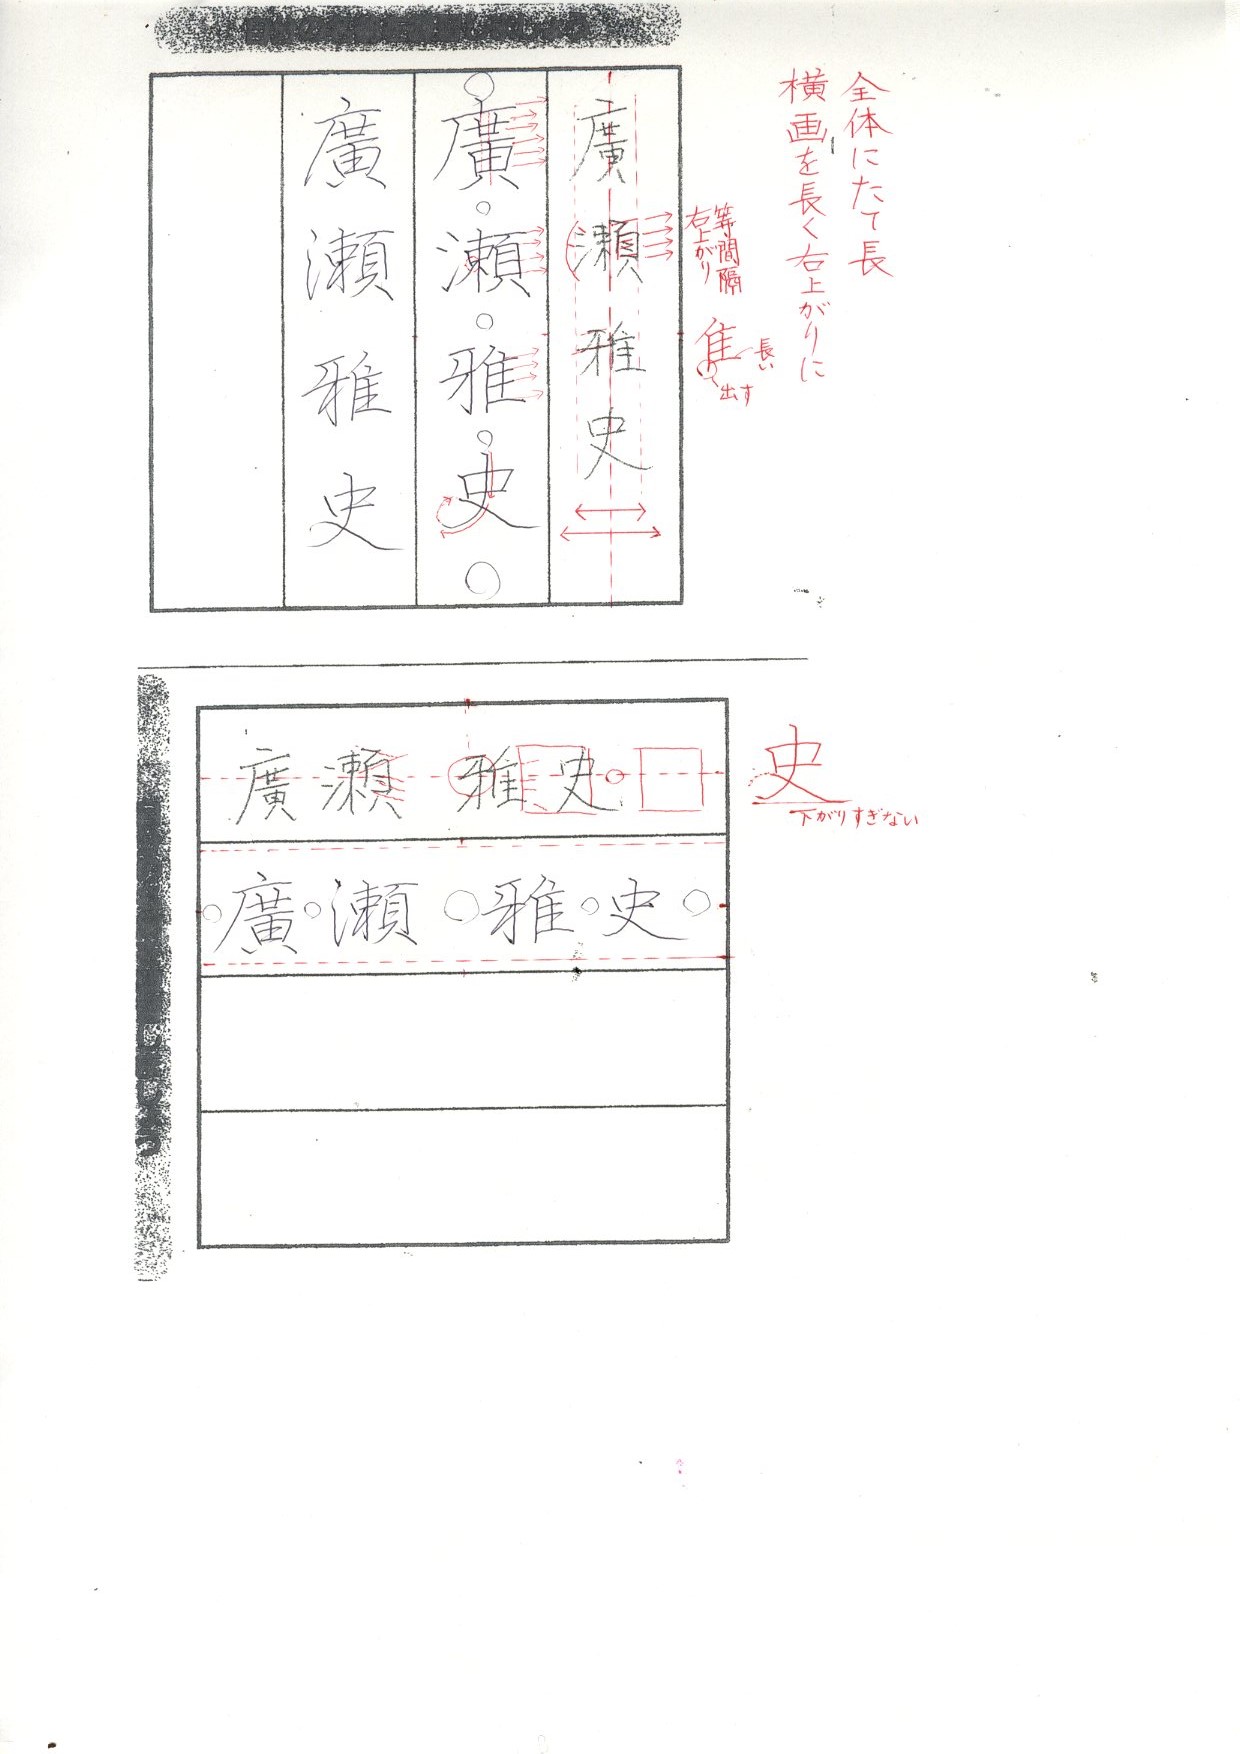 全体にたて長
横画を長く右上がりに
廣瀬雅史
等間隔
右上がり
隹
長い
出す
廣瀬雅史
廣瀬雅史
廣瀬 雅史
史
下がりすぎない
廣瀬 雅史